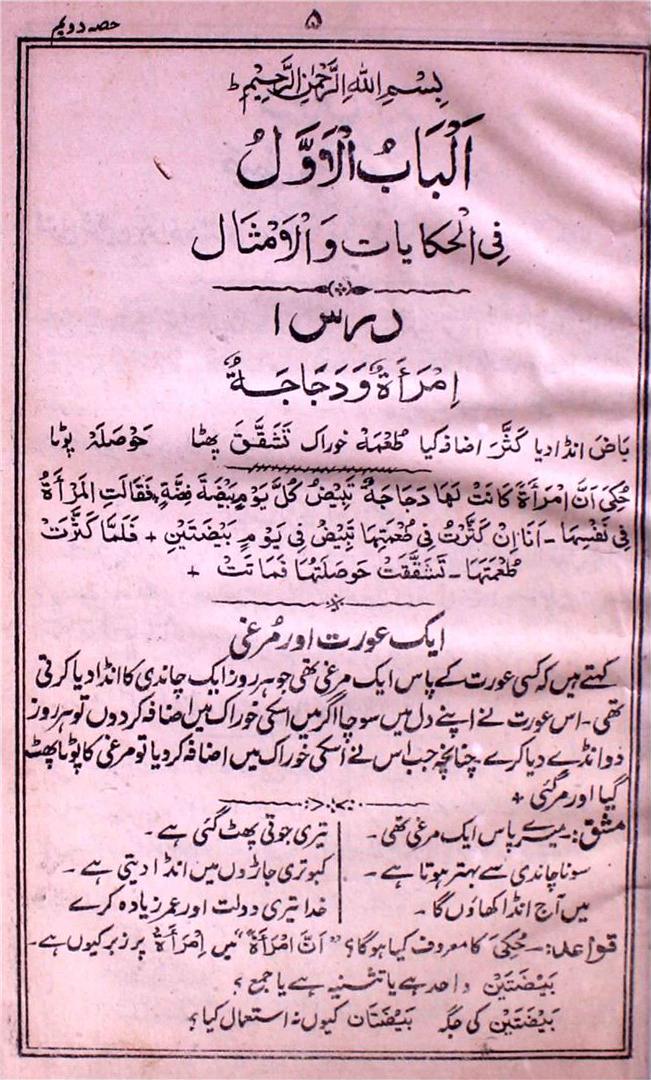 حصہ دویم
۵
بِسْمِ اللهِ الرَّحْمٰنِ الرَّحِيْمِ ط
اَلْبَابُ الْاَوَّلُ
فِي الْحِكَايَاتِ وَالْاَمْثَالِ
درس ۱
اِمْرَأَةٌ وَدَجَاجَةٌ
بَاضَ انڈا دیا كَثَّرَ اضافہ کیا طُعْمَةٌ خوراک تَشَقَّقَ پھٹا حَوْصَلَةٌ پوٹا
حُكِيَ اَنَّ امْرَأَةً كَانَتْ لَهَا دَجَاجَةٌ تَبِيْضُ كُلَّ يَوْمٍ بَيْضَةَ فِضَّةٍ فَقَالَتِ الْمَرْأَةُ
فِيْ نَفْسِهَا - اَنَا اِنْ كَثَّرْتُ فِيْ طُعْمَتِهَا تَبِيْضُ فِيْ يَوْمٍ بَيْضَتَيْنِ + فَلَمَّا كَثَّرَتْ
طُعْمَتَهَا - تَشَقَّقَتْ حَوْصَلَتُهَا فَمَاتَتْ +
ایک عورت اور مُرغی
کہتے ہیں کہ کسی عورت کے پاس ایک مرغی تھی جو ہر روز ایک چاندی کا انڈا دیا کرتی
تھی - اس عورت نے اپنے دل میں سوچا اگر میں اسکی خوراک میں اضافہ کردوں تو ہر روز
دو انڈے دیا کرے چنانچہ جب اس نے اسکی خوراک میں اضافہ کر دیا تو مرغی کا پوٹا پھٹ
گیا اور مرگئی +
مشق :- میرے پاس ایک مرغی تھی - تیری جوتی پھٹ گئی ہے -
سونا چاندی سے بہتر ہوتا ہے - کبوتری جاڑوں میں انڈا دیتی ہے -
میں آج انڈا کھاؤں گا - خدا تیری دولت اور عمر زیادہ کرے
قواعد :- حُكِيَ کا معروف کیا ہوگا؟ "اَنَّ امْرَأَةً" میں اِمْرَأَةً پر زبر کیوں ہے -
بَيْضَتَيْنِ واحد ہے یا تثنیہ ہے یا جمع ؟
بَيْضَتَيْنِ کی جگہ بَيْضَتَان کیوں نہ استعمال کیا ؟